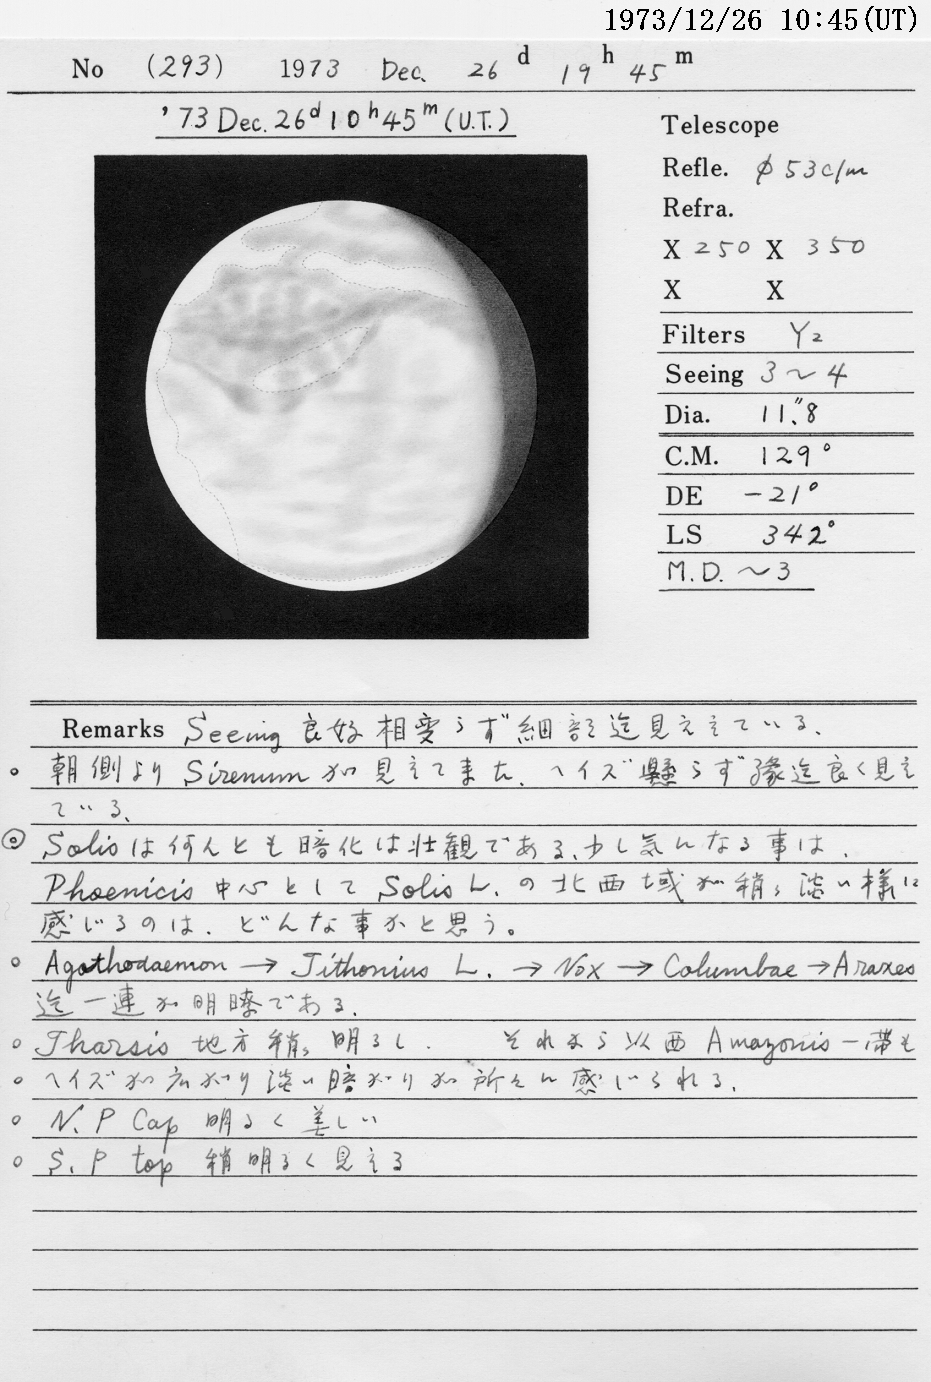 1973/12/26 10:45(UT)
No (293) 1973 Dec. 26d 19h 45m
'73 Dec. 26d 10h 45m (U.T.)
Telescope
Refle. φ 53c/m
Refra.
X 250 X 350
X X
Filters Y2
Seeing 3~4
Dia. 11."8
C.M. 129°
DE -21°
LS 342°
M.D. ~3
Remarks Seeing 良好 相変らず 細部迄見えている、
○ 朝側より Sirenum が見えてきた、ヘイズ懸らず縁迄良く見え
ている、
◎ Solisは何んとも暗化は壮観である、少し気になる事は、
Phoenicis 中心として Solis L. の北西域が稍々淡い様に
感じるのは、どんな事かと思う。
○ Agathodaemon → Tithonius L. → Nox → Columbae → Araxes
迄一連が明瞭である、
○ Tharsis 地方稍々明るし. それから以西 Amazonis 一帯も
○ ヘイズが広がり淡い暗がりが所々に感じられる、
○ N. P Cap 明るく美しい
○ S. P top 稍明るく見える